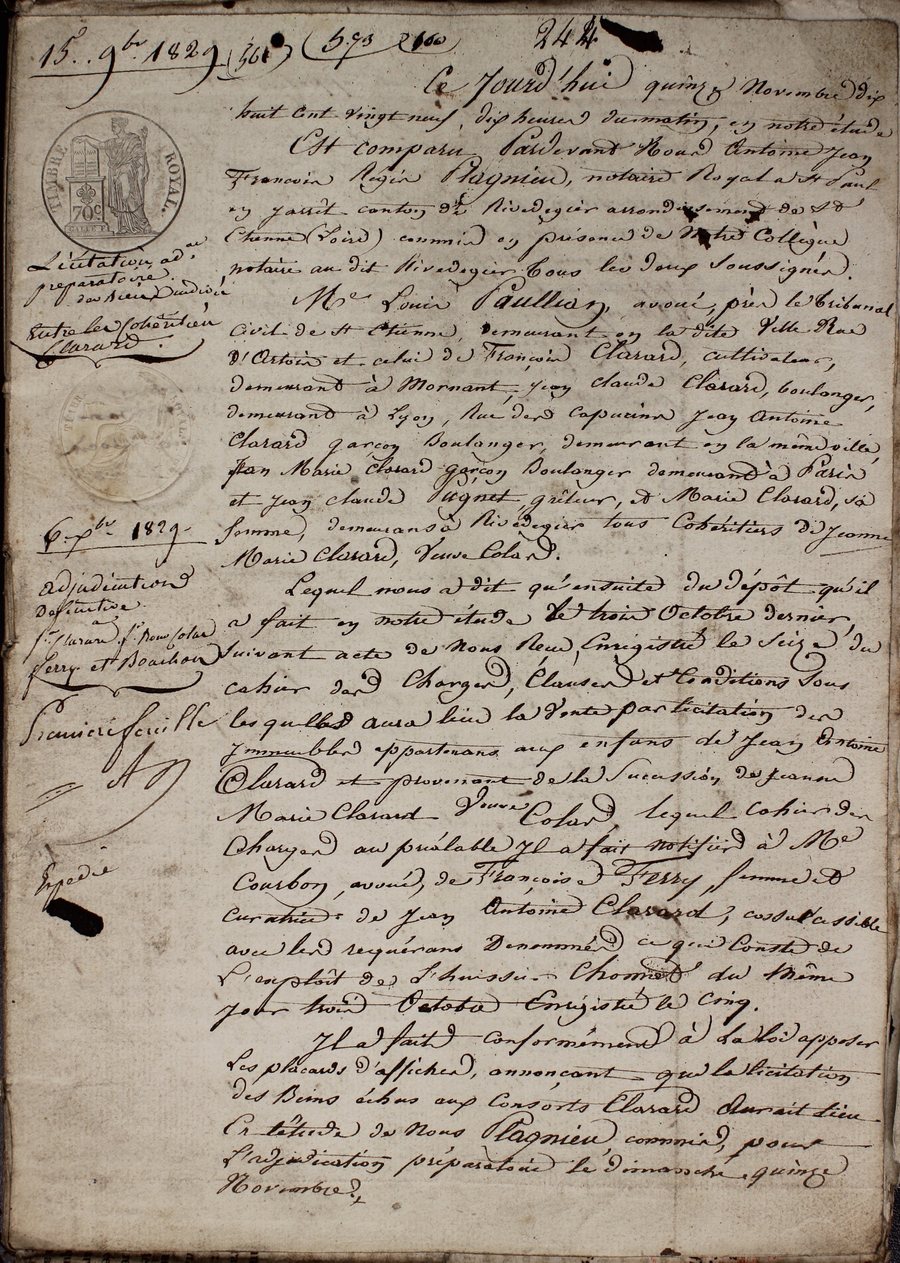 15 9bre 1829
561
573
100
244
TIMBRE ROYAL
70c
Licitation adon
préparatoire
des Biens indivis
Entre les Cohéritiers
Clarard.
6 Xbre 1829
adjudication
Définitive
Sr Clarard à Sr Benoit Colar
Ferry et Bourbon
Premiere feuille
Expédié
Ce Jourd'hui quinze Novembre dix
huit cent vingt neuf, dix heures du matin, en notre étude
Est comparu Pardevant Nous Antoine Jean
François Régis Plagnieu, notaire Royal a St Paul
en jarrêt canton de Rivedegier arrondissement de St
Etienne (Loire) commis en présence de Notre Collègue
notaire au dit Rivedegier tous les deux soussignés.
Me Louis Paullian, avoué, près le tribunal
Civil de St Etienne, demeurant en la dite Ville Rue
D'Artois et celui de François Clarard, cultivateur,
demeurant à Mornant, Jean Claude Clarard, boulanger,
demeurant à Lyon, Rue des capucins Jean Antoine
Clarard garçon Boulanger, demeurant en la même ville,
Jean Marie Clarard garçon Boulanger demeurant à Paris
et Jean Claude Pugnet, grêleur, et Marie Clarard, sa
femme, demeurans à Rivedegier tous Cohéritiers de Jeanne
Marie Clarard, Veuve Colard.
Lequel nous a dit qu'ensuite du dépôt qu'il
a fait en notre étude le trois Octobre dernier,
suivant acte de Nous Reçu, Enregistré le seize du
cahier des Charges, Clauses et Conditions sous
lesquelles aura lieu la Vente par licitation des
Immeubles appartenans aux enfans de Jean Antoine
Clarard et provenant de la Sucession de jeanne
Marie Clarard Veuve Colard, lequel cahier des
Charges au préalable Il a fait notifier à Me
Courbon, avoué, de Françoise Ferry, femme et
curatrice de Jean Antoine Clarard,
avec les requérans Denommés ce qui Conste de
L'exploit de L'huissier Chomet du même
jour trois Octobre Enrégistré le cinq.
Il a fait conformément à La loi apposer
Les placards d'affiches, annonçant que la licitation
des Biens échus aux Consorts Clarard Aurait Lieu
En l'étude de Nous Plagnieu commis, pour
L'adjudication préparatoire le dimanche quinze
Novembre,